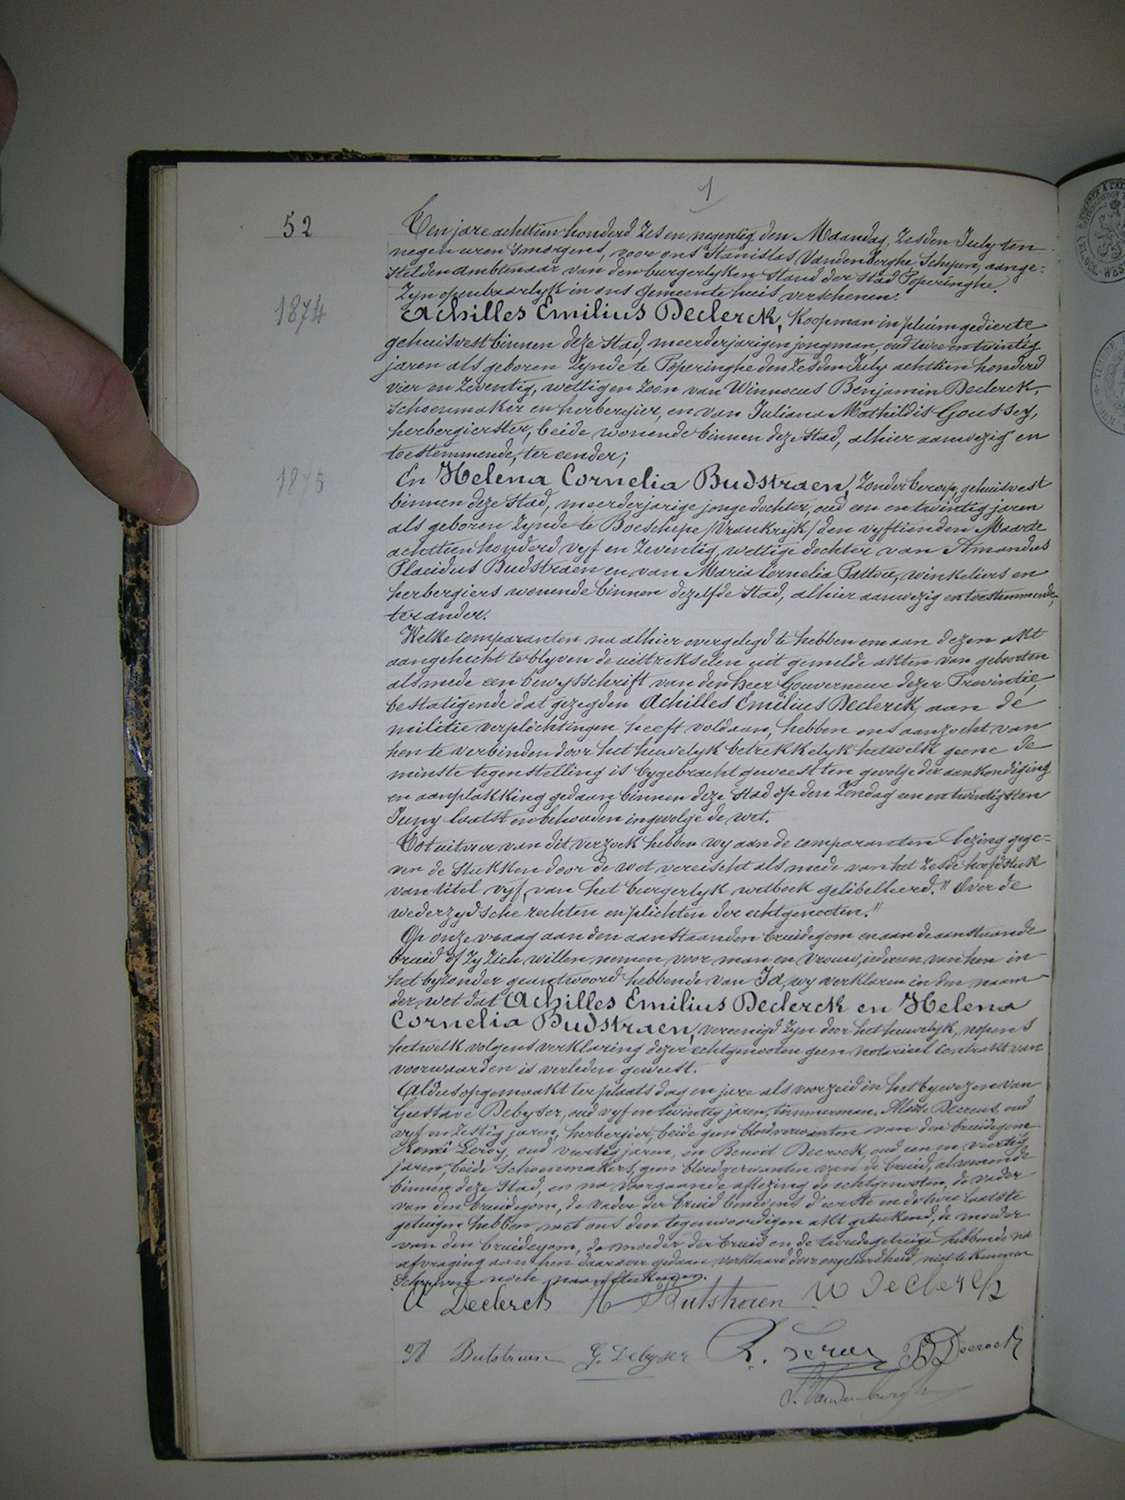 1
52
Ten jare achttien honderd zes en negentig den Maandag, zesden July ten
negen uren 'smorgens, voor ons Stanislas Vandenberghe, Schepen, aange-
stelden ambtenaar van den burgerlyken stand der stad Poperinghe
zyn openbaarlyk in ons gemeentehuis verschenen:
1874
Achilles Emilius Declerck, Koopman in pluimgedierte
gehuisvest binnen deze stad, meerderjarigen jongman, oud twee en twintig
jaren als geboren zynde te Poperinghe den zesden July achttien honderd
vier en zeventig, wettigen zoon van Winnocus Benjamin Declerck,
schoenmaker en herbergier, en van Juliana Mathildis Goussey,
herbergierster, beide wonende binnen deze stad, alhier aanwezig en
toestemmende, ter eender;
1875
En Helena Cornelia Budstraen, zonder beroep, gehuisvest
binnen deze stad, meerderjarige jonge dochter, oud een en twintig jaren
als geboren zynde te Boeschepe (Vrankryk) den vyftienden Maarte
achttien honderd vyf en zeventig, wettige dochter van Amandus
Placidus Budstraen en van Maria Cornelia, winkeliers en
herbergiers wonende binnen dezelfde stad, alhier aanwezig en toestemmende,
ter ander.
Welke comparanten na alhier overgelegd te hebben om aan dezen akt
aangehecht te blyven de uittrekselen uit gemelde akten van geboorten
alsmede een bewysschrift van den heer Gouverneur dezer Provintie,
bestatigende dat gezegden Achilles Emilius Declerck, aan de
militie verplichtingen heeft voldaan, hebben ons aanzocht van
hen te verbinden door het huwelyk betrekkelyk hetwelk geene de
minste tegenstelling is bygebracht geweest ten gevolge der aankondiging
en aanplakking gedaan binnen deze stad op den Zondag een en twintigsten
Juny laatst en behouden ingevolge de wet.
Tot uitvoer van dit verzoek hebben wy aan de comparanten lezing gege-
ven de stukken door de wet vereischt als mede van het zesde hoofdstuk
van titel vyf, van het burgerlyk wetboek gelibelleerd. "Over de
wederzydsche rechten en plichten der echtgenooten."
Op onze vraag aan den aanstaanden bruidegom en aan de aanstaande
bruid of zy zich willen nemen voor man en vrouw, iedereen van hen in
het byzonder geantwoord hebbende van Ja, wy verklaren in den naam
der wet dat Achilles Emilius Declerck en Helena
Cornelia Budstraen, vereenigd zyn door het huwelyk, nopens
hetwelk volgens verklaring dezer echtgenooten geen notarieel contrakt van
voorwaarden is verleden geweest.
Aldus opgemaakt ter plaats dag en jare als voorzeid in het bywezen van
Gustave Debyser, oud vyf en twintig jaren, timmerman, oud
vyf en zestig jaren, herbergier, beide geen bloedverwanten van den bruidegom
Henri Leroy, oud veertig jaren, en Benoit Deerock, oud een en veertig
jaren, beide schoenmakers, geen bloedverwanten van de bruid, al wonende
binnen deze stad, en na voorgaande aflezing de echtgenooten, de vader
van den bruidegom, de vader der bruid benevens d'eerste en de twee laatste
getuigen hebben met ons den tegenwoordigen akt geteekend, de moeder
van den bruidegom, de moeder der bruid en de tweede getuige hebbende na
afvraging aan hen daarover gedaan, verklaard door ongeleerdheid niet te kunnen
schryven noch naamteekenen.
A Declerck H Butstraen W Declerck
A Butstraen G. Debyser Leroy B Deerock
S. Vandenberghe